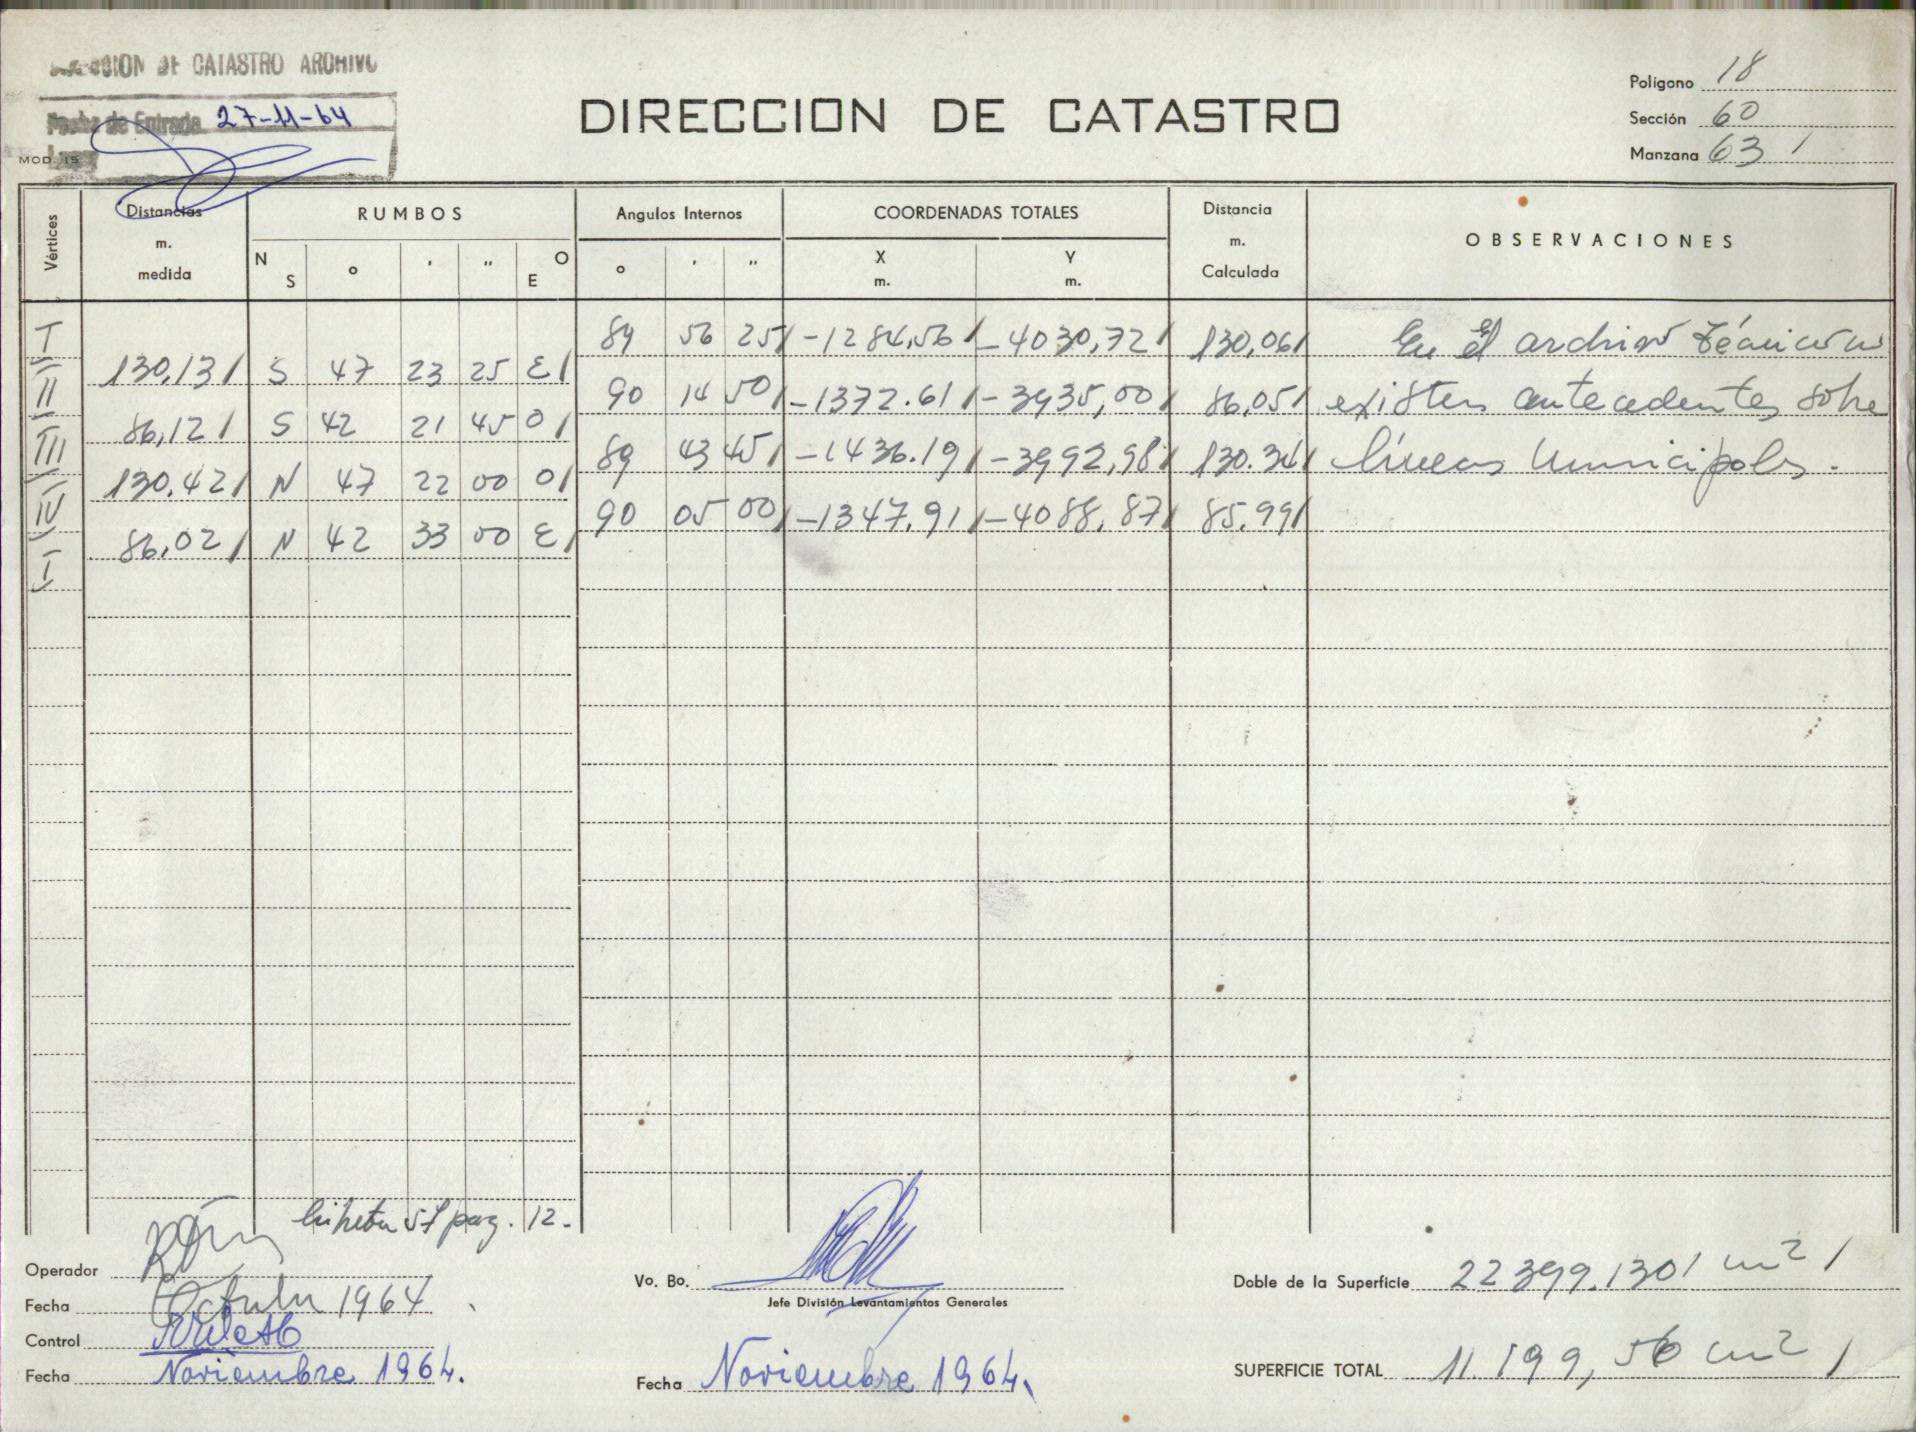 DIRECCION DE CATASTRO ARCHIVO
Fecha de Entrada 27-11-64
MOD. 15
DIRECCION DE CATASTRO
Polígono 18
Sección 60
Manzana 63
Vértices
Distancias m. medida
RUMBOS
N S ° ' " O E
Angulos Internos
° ' "
COORDENADAS TOTALES
X m. Y m.
Distancia m. Calculada
OBSERVACIONES
I 89 56 25 -1284,56 -4030,72 130,06 En El archivo técnico
130,13 S 47 23 25 E
II 90 14 50 -1372.61 -3935,00 86,05 existen antecedentes sobre
86,12 S 42 21 45 O
III 89 43 45 -1436.19 -3992,98 130.34 líneas Municipales.
130,42 N 47 22 00 O
IV 90 05 00 -1347.91 -4088,87 85,99
86,02 N 42 33 00 E
I
pag. 12.
Operador
Fecha Octubre 1964
Control
Fecha Noviembre 1964.
Vo. Bo.
Jefe División Levantamientos Generales
Fecha Noviembre 1964.
Doble de la Superficie 22399.1301 m2
SUPERFICIE TOTAL 11.199,56 m2